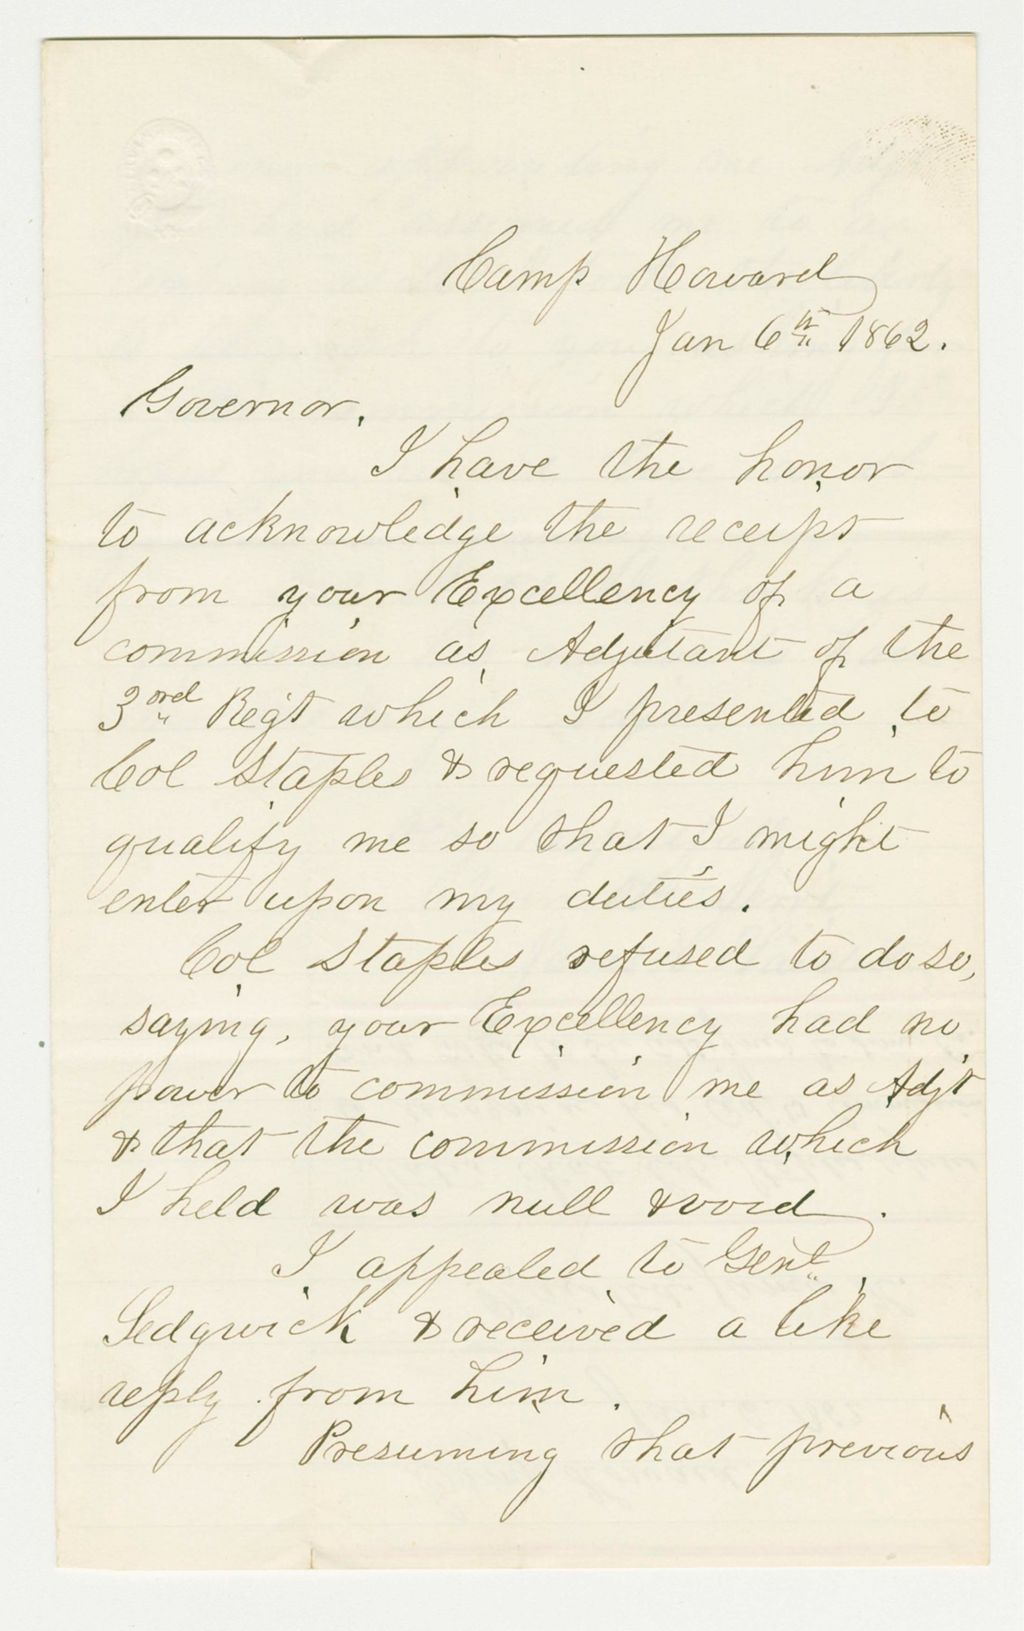 Camp Howard
Jan 6th 1862.
Governor,
I have the honor
to acknowledge the receipt
from your Excellency of a
commission as Adjutant of the
3rd Regt which I presented to
Col Staples & requested him to
qualify me so that I might
enter upon my duties.
Col Staples refused to do so,
saying, your Excellency had no
power to commission me as Adjt
& that the commission which
I held was null & void.
I appealed to Genl
Sedgwick & received a like
reply from him.
Presuming that previous